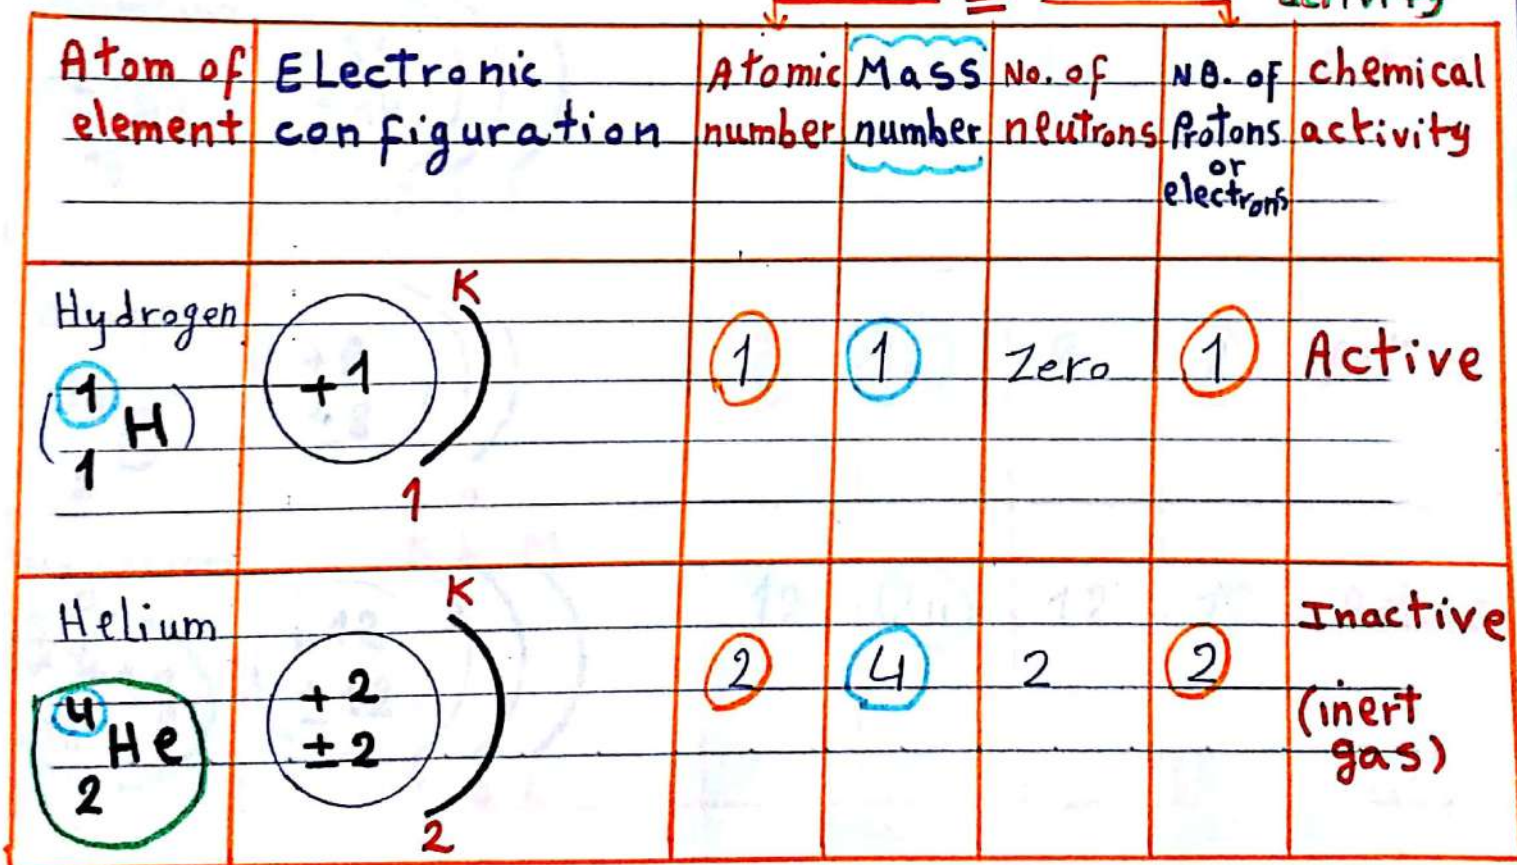 =
activity
Atom of element
Electronic configuration
Atomic number
Mass number
No. of neutrons
No. of Protons or electrons
chemical activity
Hydrogen
1
( H)
1
+1
K
1
1
1
Zero
1
Active
Helium
4
He
2
+2
±2
K
2
2
4
2
2
Inactive
(inert
gas)